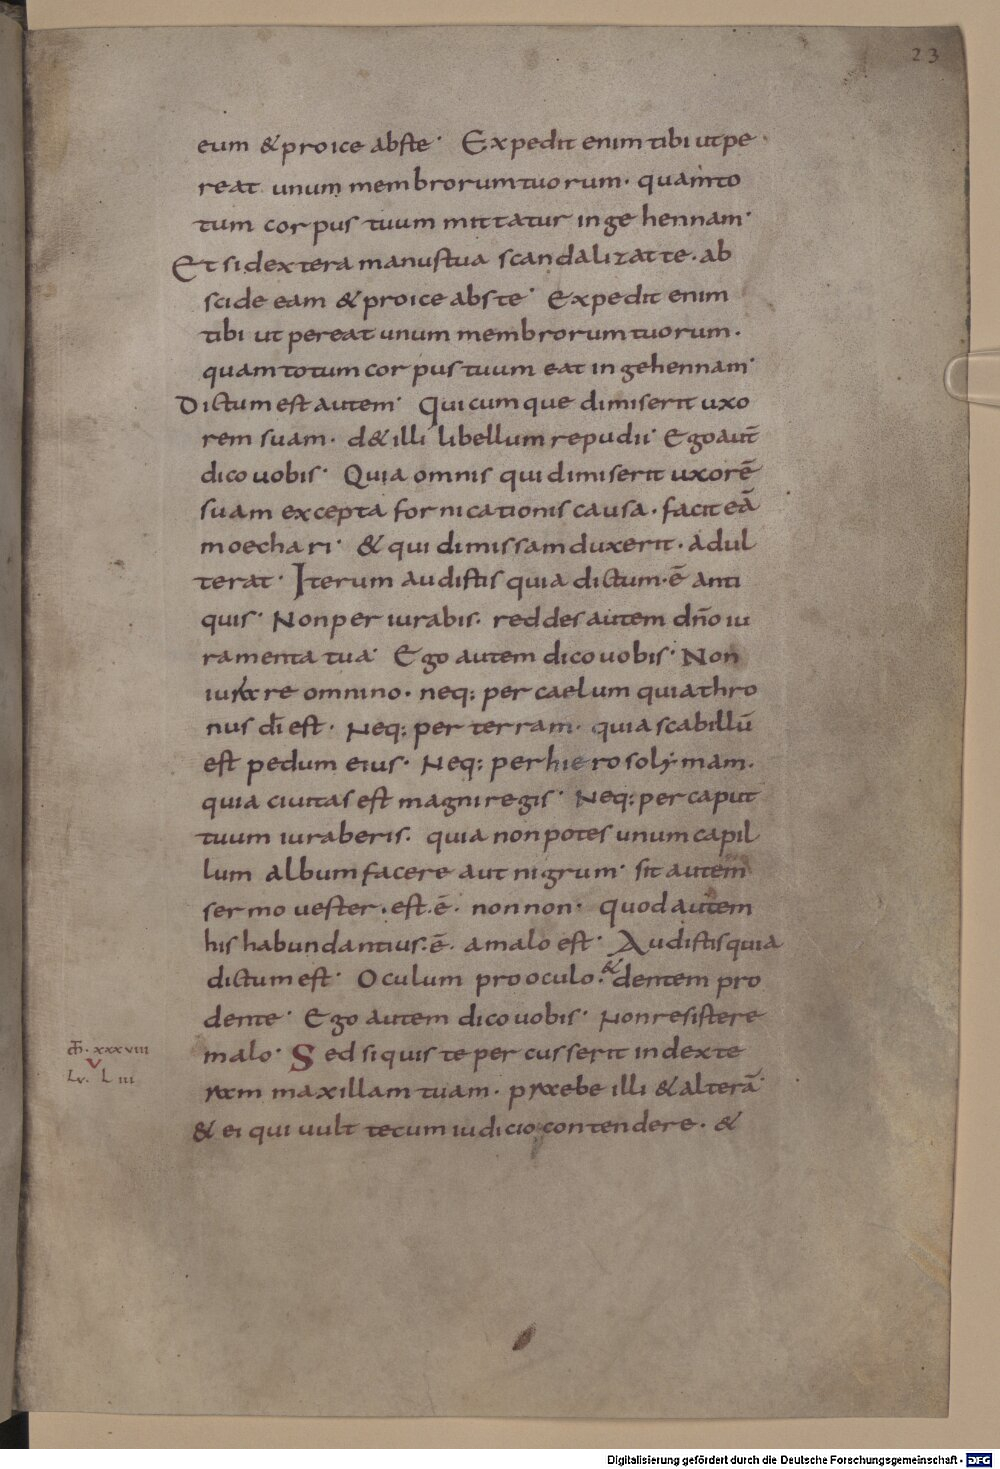 23
eum & proice abste· Expedit enim tibi ut pe
reat unum membrorum tuorum· quam to
tum corpus tuum mittatur in gehennam·
Et si dextera manus tua scandalizat te· ab
scide eam & proice abs te· Expedit enim
tibi ut pereat unum membrorum tuorum·
quam totum corpus tuum eat in gehennam·
Dictum est autem· Quicumque dimiserit uxo
rem suam· d& illi libellum repudii· Ego aut̄
dico uobis· Quia omnis qui dimiserit uxorē
suam excepta fornicationis causa· facit eā
moechari· & qui dimissam duxerit· adul
terat· Iterum audistis quia dictum·ē anti
quis· Non periurabis· reddes autem dn̄o iu
ramenta tua· Ego autem dico uobis· Non
iurare omnino· neq; per caelum quia thro
nus dī est· Neq; per terram· quia scabillū
est pedum eius· Neq; per hierosolymam·
quia ciuitas est magni regis· Neq; per caput
tuum iuraberis· quia non potes unum capil
lum album facere aut nigrum· sit autem
sermo uester· est·ē· non non· Quod autem
his habundantius·ē· a malo est· Audistis quia
dictum est· Oculum pro oculo· & dentem pro
dente· Ego autem dico uobis· Non resistere
malo· Sed si quis te percusserit in dexte
ram maxillam tuam· praebe illi & alterā·
& ei qui uult tecum iudicio contendere· &
m̄· xxxviii
V
Lv· Liii
Digitalisierung gefördert durch die Deutsche Forschungsgemeinschaft - DFG